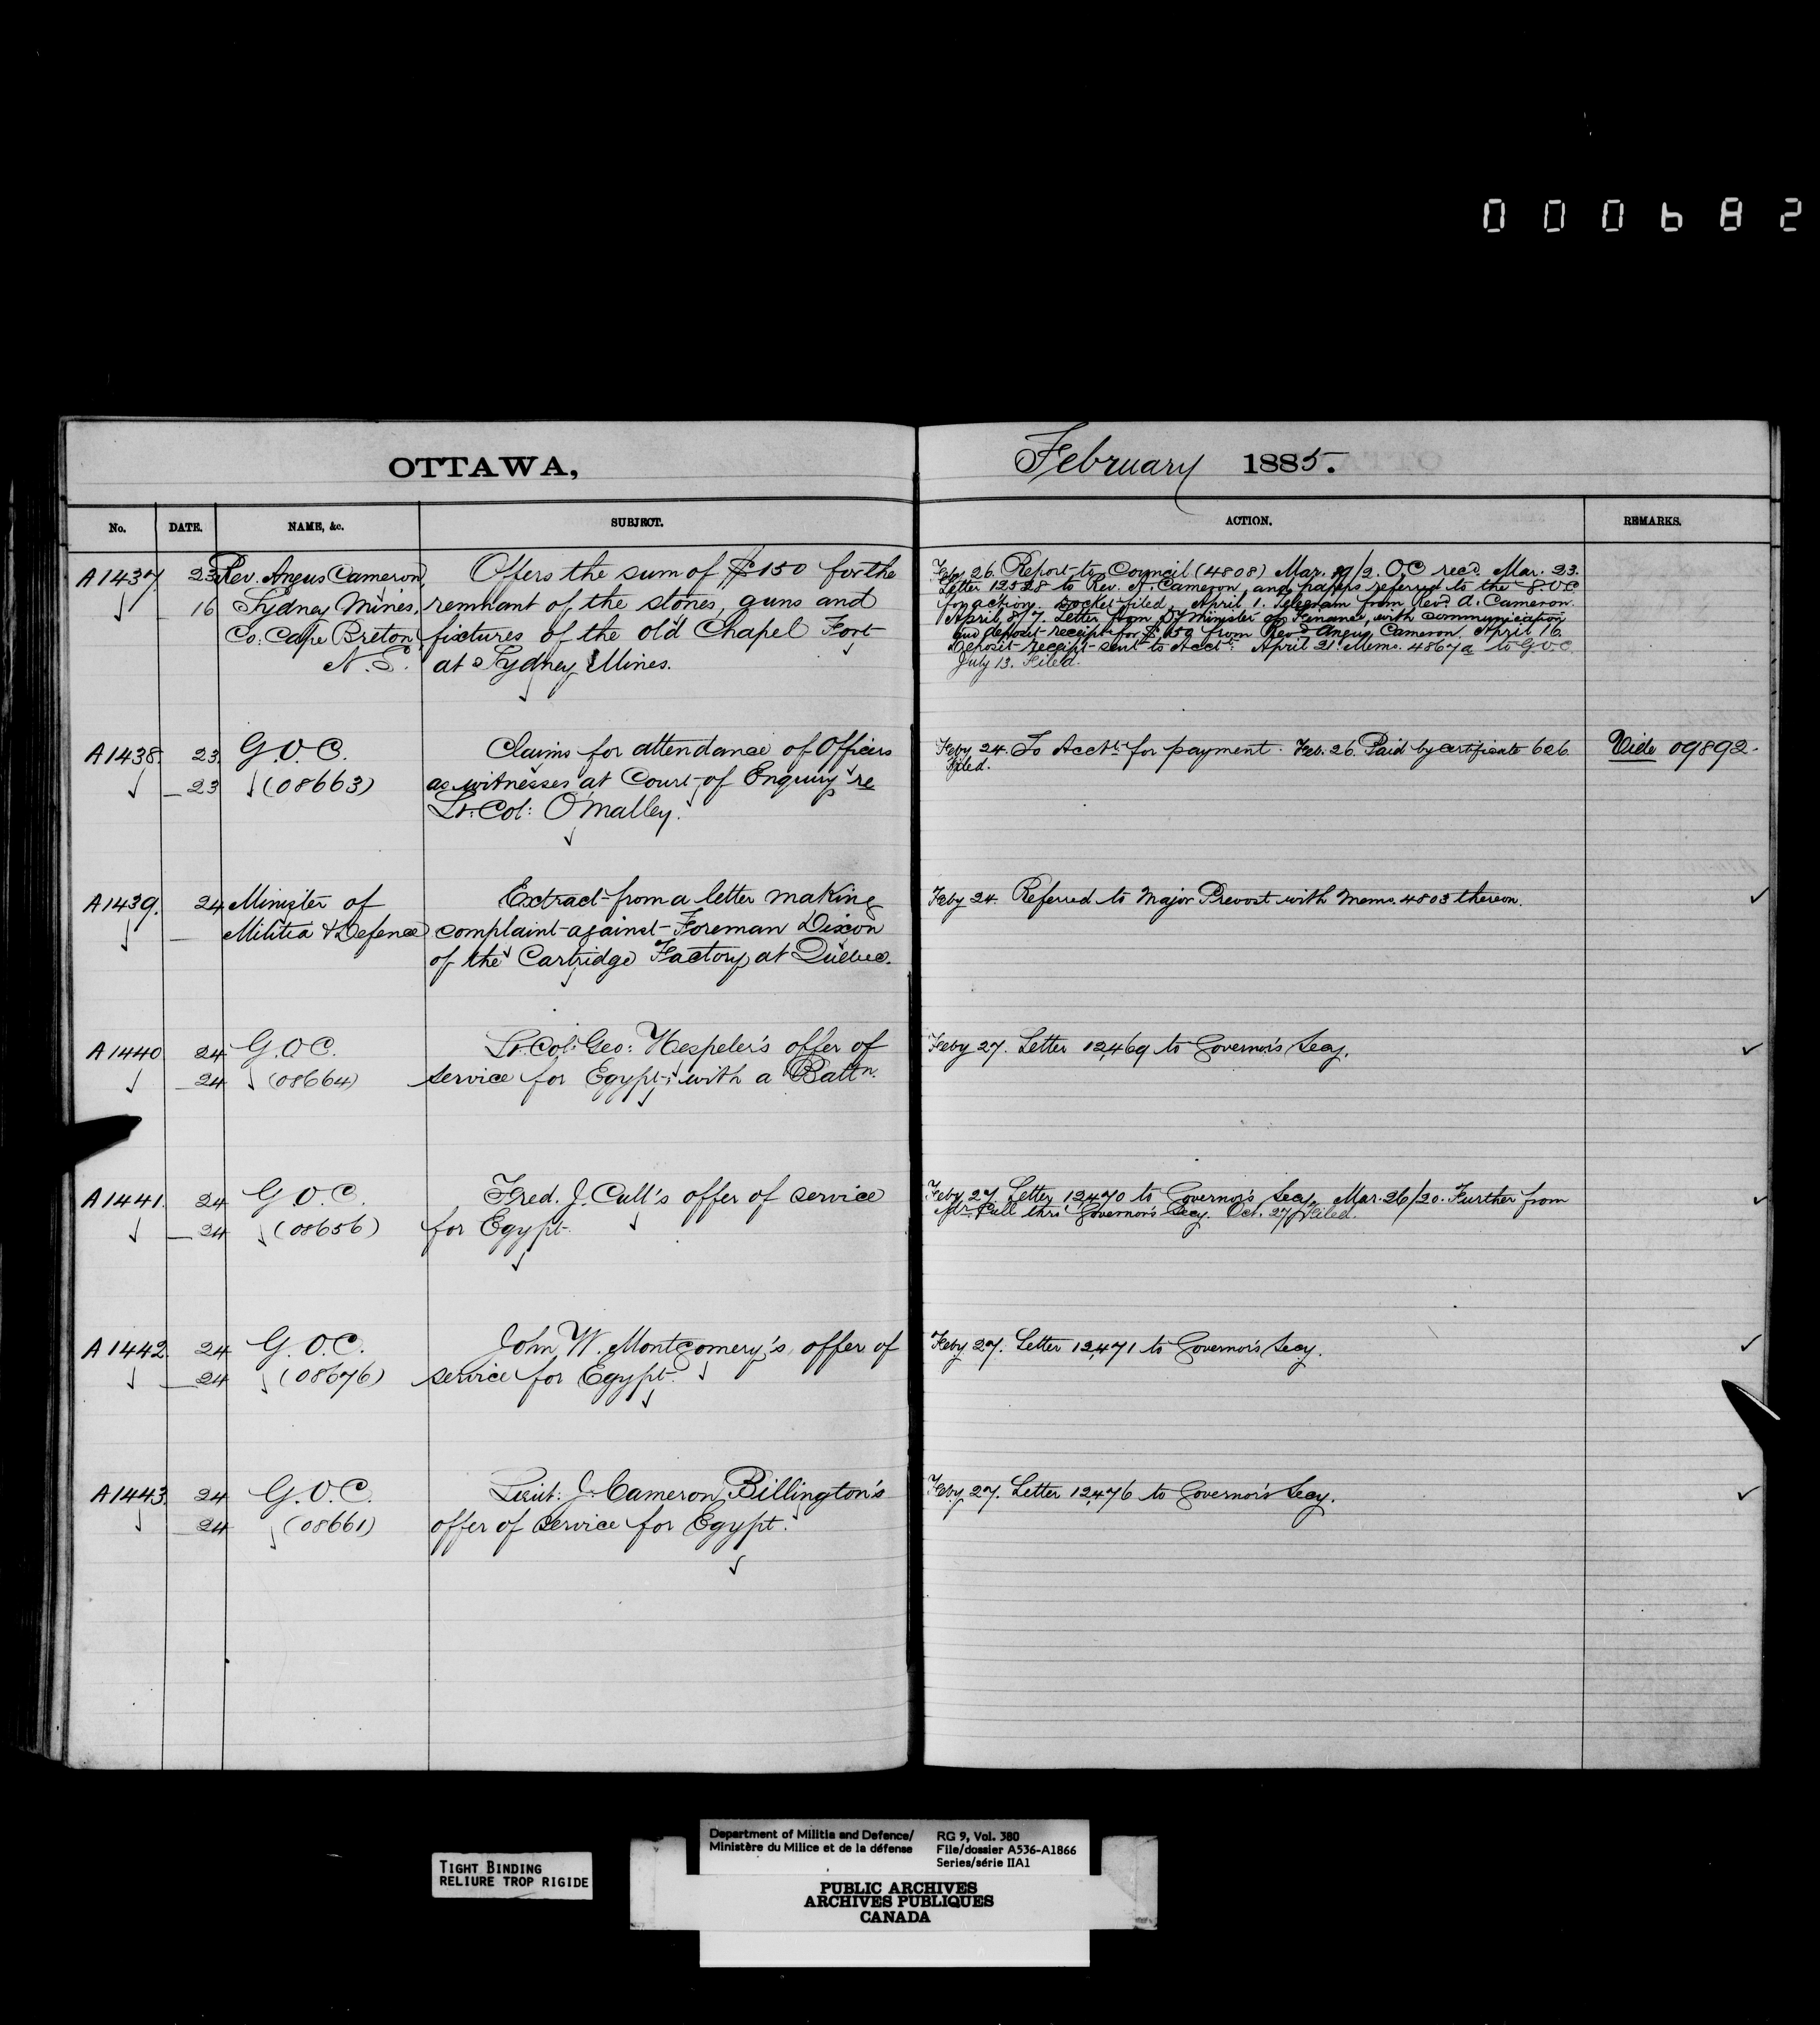 000682
OTTAWA,
February 1885.
No. DATE. NAME, &c. SUBJECT. ACTION. REMARKS.
A1437 23 Rev. Angus Cameron, Offers the sum of $150 for the
16 Sydney Mines, remnant of the stones, guns and
Co: Cape Breton fixtures of the old Chapel Fort
N.S. at Sydney Mines.
Feby 26. Report to Council (4808) Mar. 19/2. OC recd. Mar. 23.
Letter 12528 to Rev. A. Cameron, and papers referred to the G.O.C
for action. Docket filed. April 1. Telegram from Revd. A. Cameron.
April 8/7. Letter from Dy Minister of Finance, with communication
and deposit receipt for $150 from Revd. Angus Cameron. April 16.
Deposit receipt sent to Acct: April 21. Memo. 4867a to G.O.C.
July 13. Filed.
A1438. 23 G.O.C. Claims for attendance of Officers
23 (08663) as witnesses at Court of Enquiry re
Lt: Col: O'Malley.
Feby 24. To Acct. for payment. Feb. 26. Paid by certificate 626 Vide 09892.
Filed.
A1439. 24 Minister of Extract from a letter making
Militia & Defence complaint against Foreman Dixon
of the Cartridge Factory at Quebec.
Feby 24. Referred to Major Prevost with Memo. 4803 thereon.
A1440 24 G.O.C. Lt. Col: Geo: Hespeler's offer of
24 (08664) service for Egypt; with a Battn.
Feby 27. Letter 12,469 to Governor's Secy.
A1441. 24 G.O.C. Fred. J. Cull's offer of service
24 (08656) for Egypt.
Feby 27. Letter 12,470 to Governor's Secy. Mar. 26/20. Further from
Mr. Cull thro' Governor's Secy. Oct. 27 Filed.
A1442. 24 G.O.C. John W. Montgomery's offer of
24 (08676) service for Egypt.
Feby 27. Letter 12,471 to Governor's Secy.
A1443. 24 G.O.C. Lieut: J. Cameron Billington's
24 (08661) offer of service for Egypt.
Feby 27. Letter 12,476 to Governor's Secy.
TIGHT BINDING
RELIURE TROP RIGIDE
Department of Militia and Defence/
Ministère du Milice et de la défense
RG 9, Vol. 380
File/dossier A536-A1866
Series/série IIA1
PUBLIC ARCHIVES
ARCHIVES PUBLIQUES
CANADA